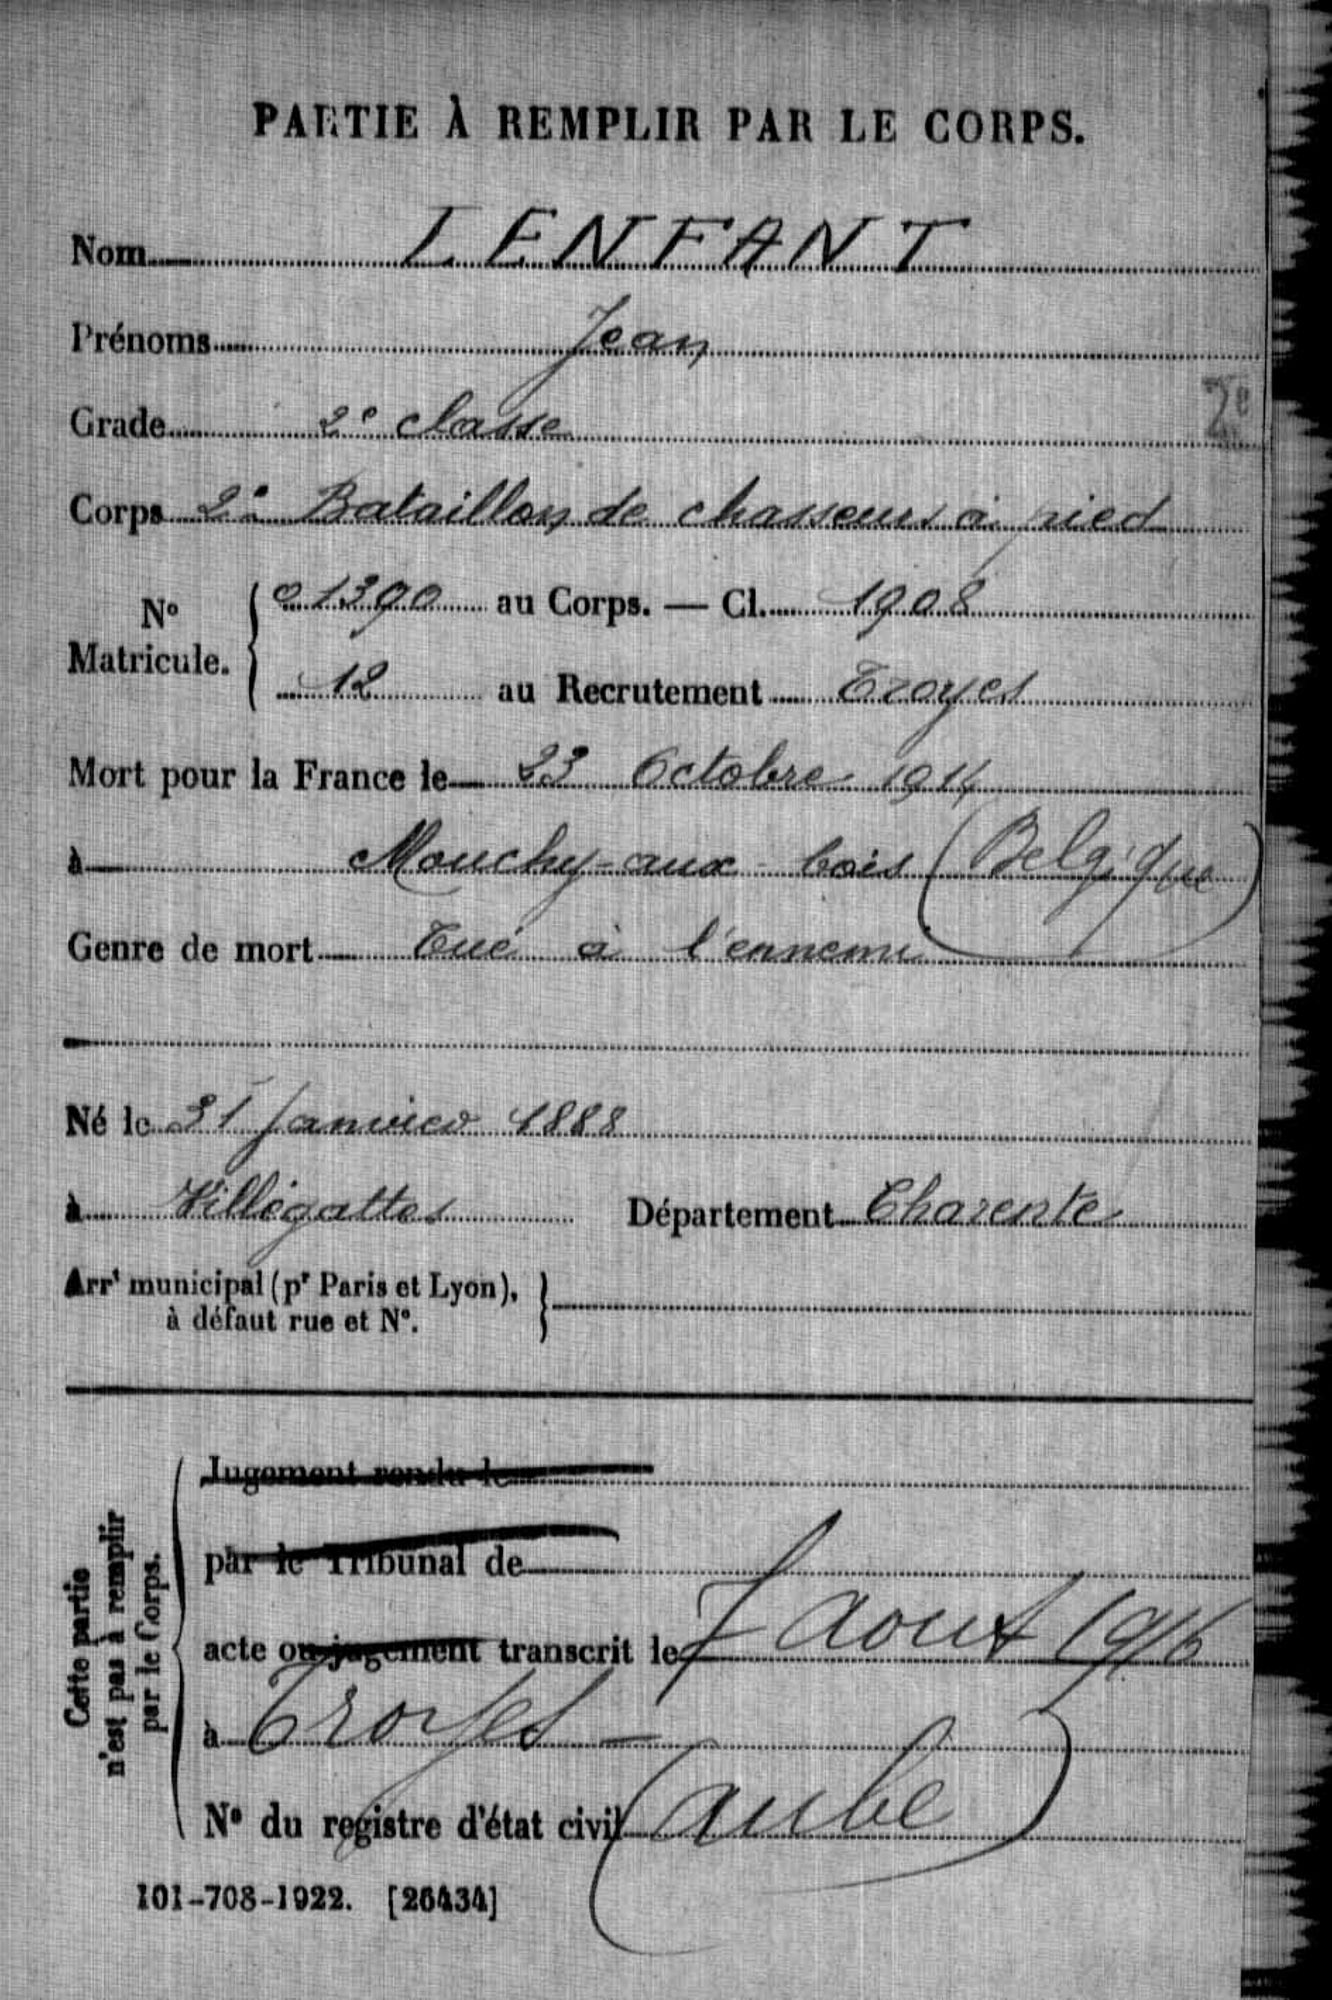 PARTIE À REMPLIR PAR LE CORPS.
Nom LENFANT
Prénoms Jean
Grade 2e classe
2e
Corps 2e Bataillon de chasseurs à pied
No Matricule. { 01390 au Corps. — Cl. 1908
12 au Recrutement Troyes
Mort pour la France le 23 Octobre 1914
à Mouchy-aux-bois (Belgique)
Genre de mort Tué à l'ennemi
Né le 31 Janvier 1888
à Villégattes Département Charente
Arrt municipal (pr Paris et Lyon), }
à défaut rue et No.
Cette partie
n'est pas à remplir
par le Corps.
Jugement rendu le
par le Tribunal de
acte ou jugement transcrit le 7 aout 1916
à Troyes -
No du registre d'état civil (aube)
101-708-1922. [26434]